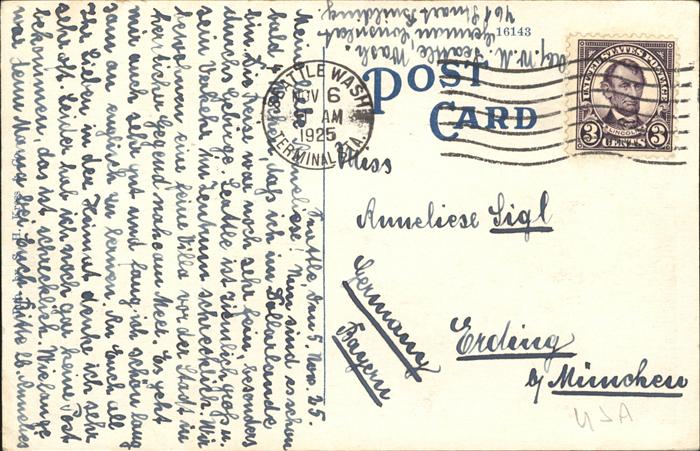 Seattle, den 5. Nov. 25.
Meine Anneliese! Nun sind es schon
bald Wochen, daß ich im Dollarlande
bin. Die Reise war noch sehr fein, besonders
durchs Gebirge. Seattle ist ziemlich groß u.
sein Verkehr im Zentrum schrecklich. Wir
bewohnen eine feine Villa vor der Stadt in
herrlicher Gegend nahe am Meer. Es geht
mir auch sehr gut und fang ich schön lang
sam an englisch zu lernen. An Euch all
Ihr Lieben in der Heimat denke ich sehr
sehr oft. Leider hab ich noch gar keine Post
bekommen, das ist schrecklich. Wie lange
war denn Mama bei Euch? Bitte
W. M.
Seattle, Wash.
German Consulate
Stuart Building
16143
POST
CARD
SEATTLE WASH.
NOV 6
AM
1925
TERMINAL STA.
UNITED STATES POSTAGE
LINCOLN
3 CENTS 3
Miss
Anneliese Sigl
Erding
b/ München
Germany
Bayern
USA